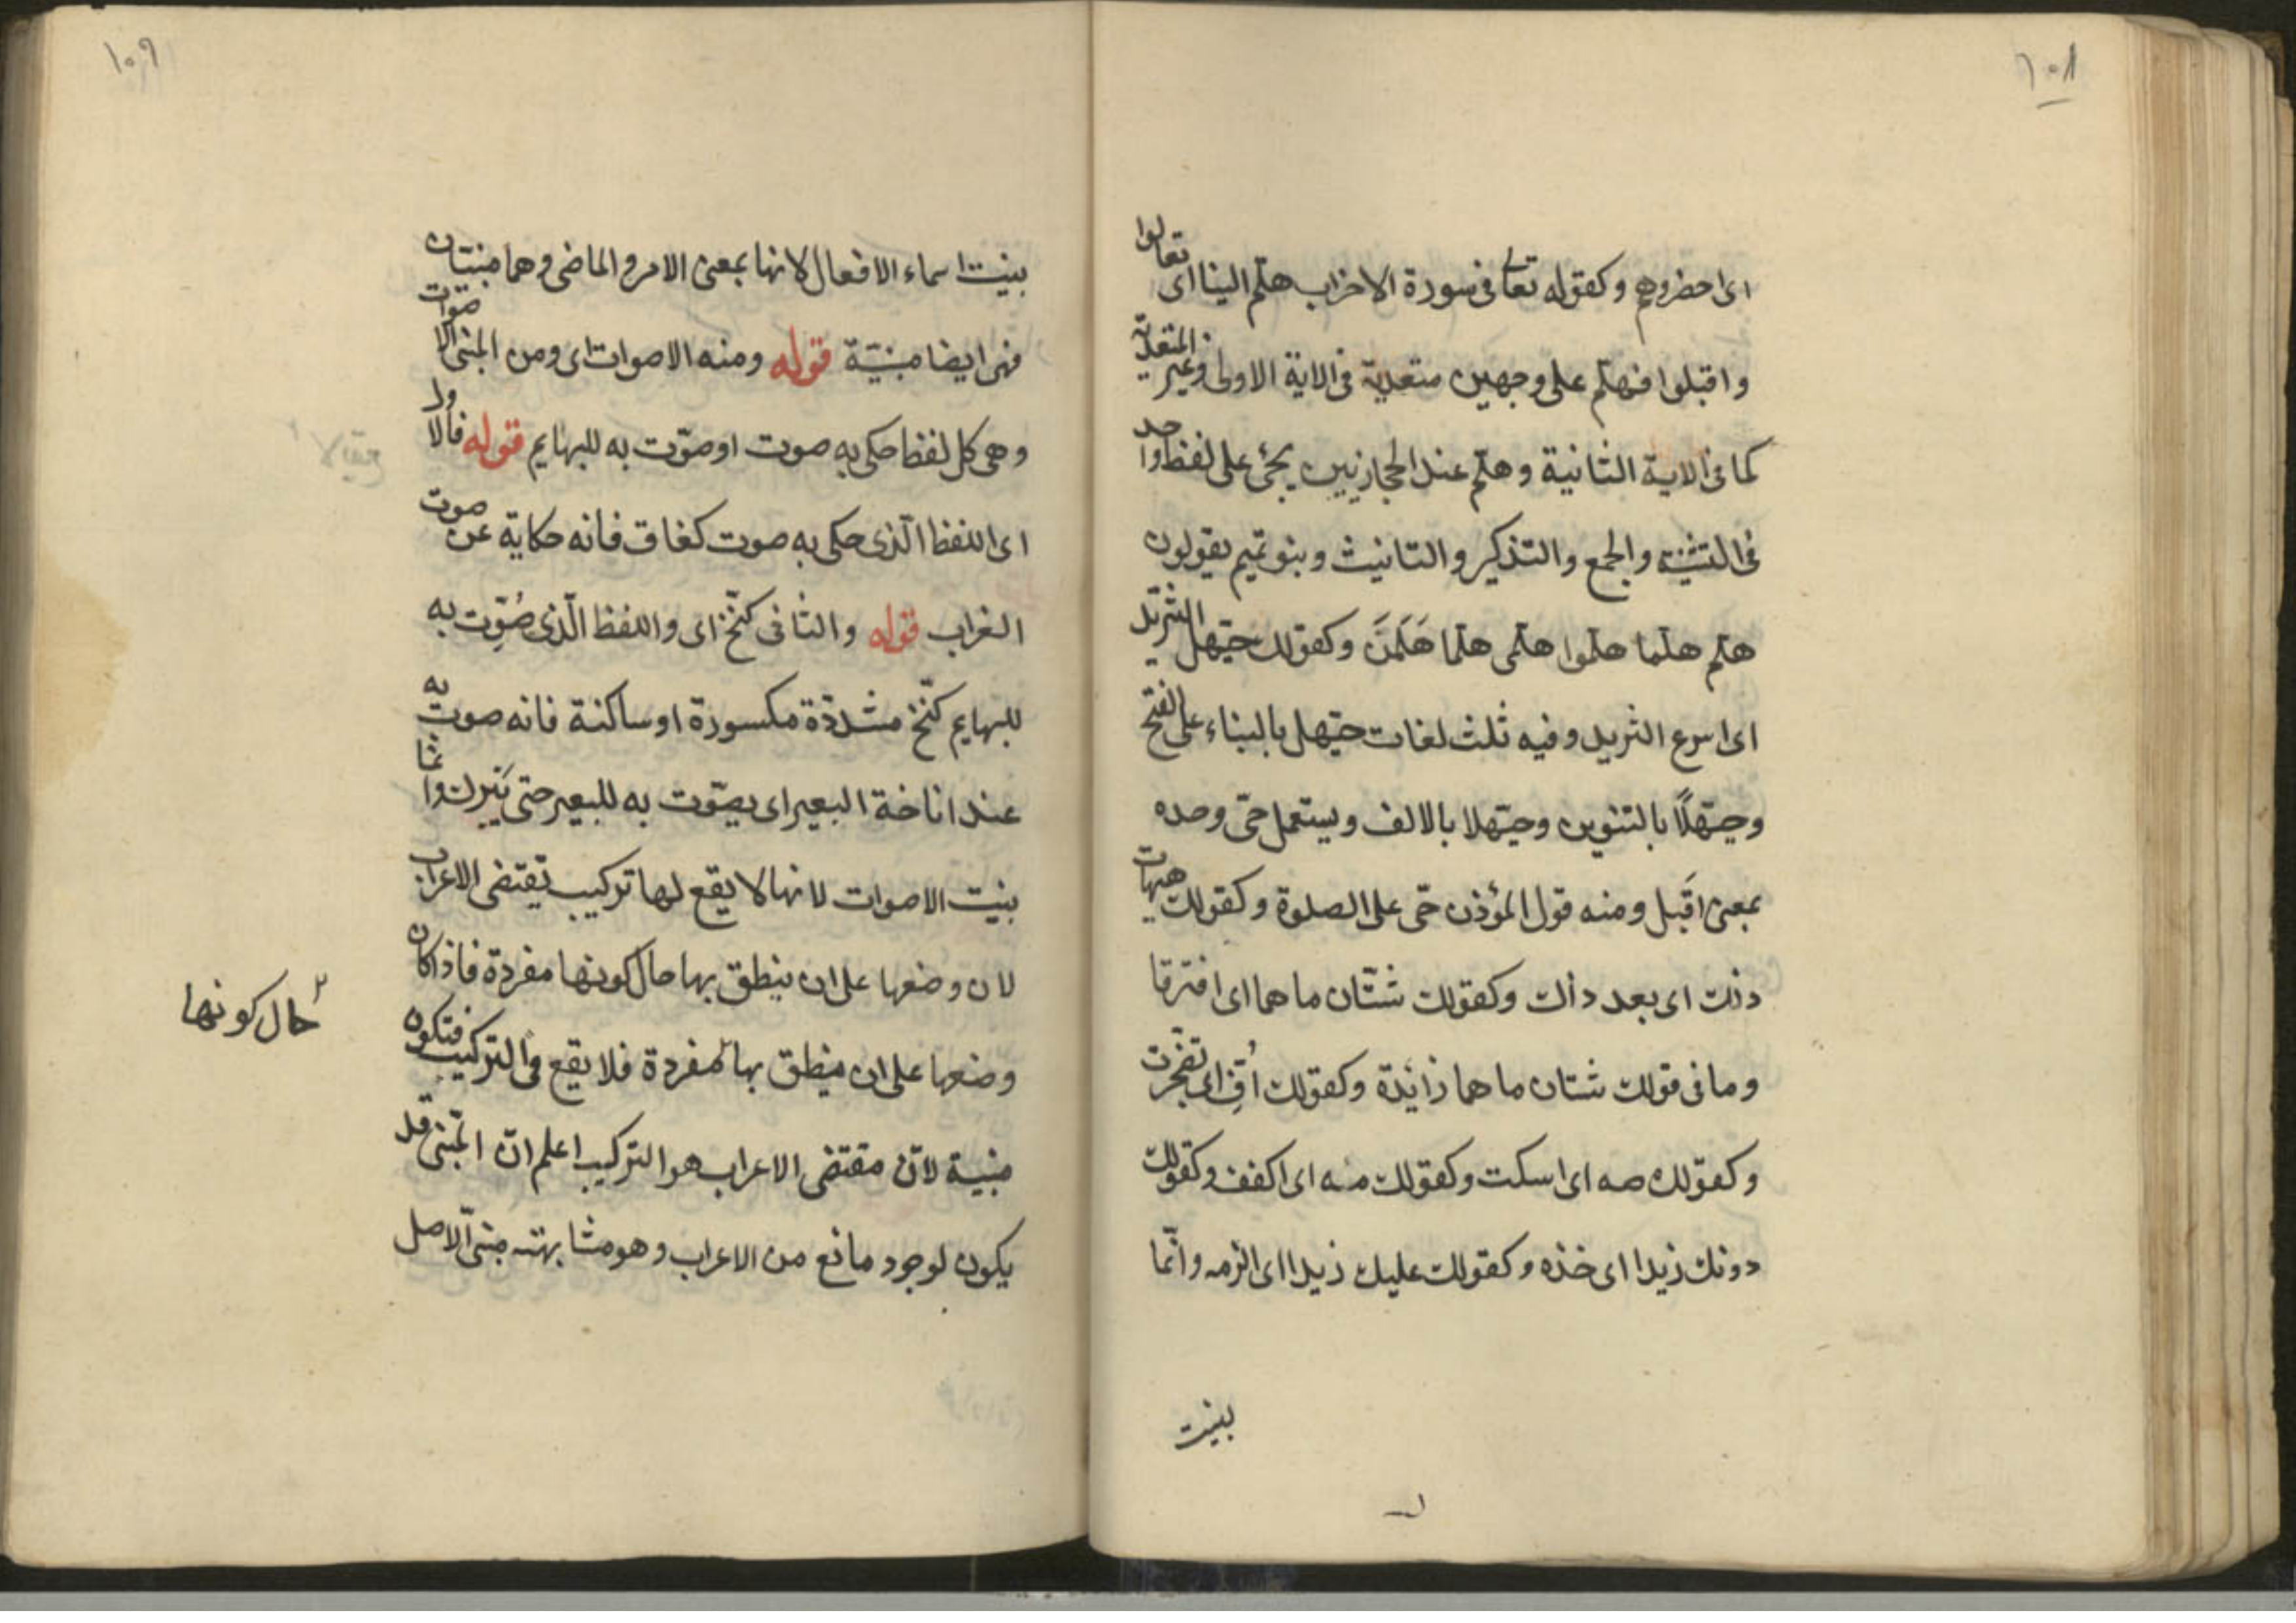 ١٠٨
اى احضروهم وكقوله تعالى فى سورة الاحزاب هلّم الينا اى تعالوا
واقبلوا فهلّم على وجهين متعدية فى الاية الاولى وغير المتعديّة
كما فى الاية الثانية وهلّم عند الحجازيين يجئ على لفظ واحد
فى التثنية والجمع والتذكير والتانيث وبنو تميم يقولون
هلّم هلّما هلّموا هلّمى هلّما هَلْمُنَ وكقولك حيّهل الثريد
اى اسرع الثريد وفيه ثلث لغات حيّهل بالبناء على الفتح
وحيّهلًا بالتنوين وحيّهلا بالالف ويستعمل حىّ وحده
بمعنى اَقبل ومنه قول المؤذن حىّ على الصلوة وكقولك هيهات
ذلك اى بعد ذلك وكقولك شتّان ما هما اى افترقا
وما فى قولك شتان ما هما زائدة وكقولك اُفّ اى تضجّرت
وكقولك صه اى اسكت وكقولك مه اى اكفف وكقولك
دونك زيدا اى خذه وكقولك عليك زيدا اى الزمه وانّما
بنيت
١٠٩
بنيت اسماء الافعال لانها بمعنى الامر والماضى وهما مبنيّان
فهى ايضا مبنيّة قوله ومنه الاصوات اى ومن المبنى الاصوات
وهى كل لفظ حكى به صوت او صوّت به للبهايم قوله فالاول
اى اللفظ الّذى حكى به صوت كغاق فانه حكاية عن صوت
الغراب قوله والثانى كنّخ اى واللفظ الّذى صُوّت به
للبهايم كنّخ مشدّدة مكسورة او ساكنة فانه صوت به
عند اناخة البعير اى يصوّت به للبعير حتى يَبرك وانّما
بنيت الاصوات لانها لا يقع لها تركيب يقتضى الاعراب
لان وضعها على ان ينطق بها حال كونها مفردة فاذا كان
وضعها على ان ينطق بها مفردة فلا يقع فى التركيب فتكون
حال كونها
مبنية لانّ مقتضى الاعراب هو التركيب اعلم انّ المبنى قد
يكون لوجود مانع من الاعراب وهو مشابهته مبنىّ الاصل